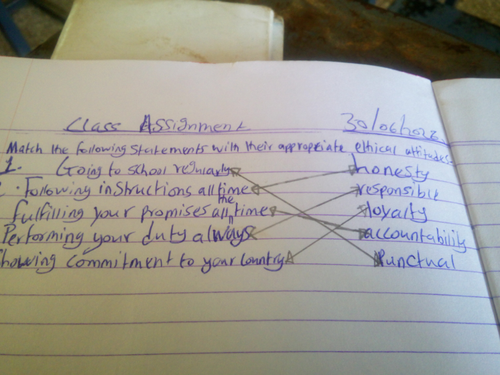 Class Assignment
Match the following statements with their appropriate ethical attitudes
1. Going to school regularly honesty
2. Following instructions all time responsible
fulfilling your promises all the time loyalty
Performing your duty always accountability
Showing commitment to your country Punctual